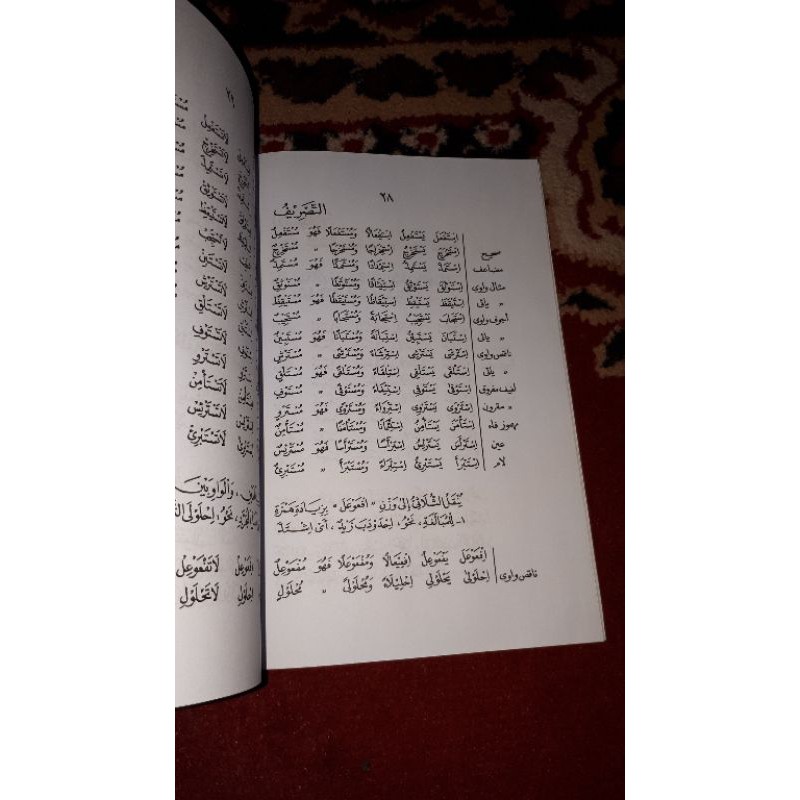 ٢٨
التَّصْرِيفُ
اِسْتَفْعَلَ يَسْتَفْعِلُ اِسْتِفْعَالًا وَمُسْتَفْعَلًا فَهُوَ مُسْتَفْعِلٌ
صحيح اِسْتَخْرَجَ يَسْتَخْرِجُ اِسْتِخْرَاجًا وَمُسْتَخْرَجًا ״ مُسْتَخْرِجٌ
مضاعف اِسْتَمَدَّ يَسْتَمِدُّ اِسْتِمْدَادًا وَمُسْتَمَدًّا فَهُوَ مُسْتَمِدٌّ
مثال واوى اِسْتَوْثَقَ يَسْتَوْثِقُ اِسْتِيْثَاقًا وَمُسْتَوْثَقًا ״ مُسْتَوْثِقٌ
״ يائى اِسْتَيْقَظَ يَسْتَيْقِظُ اِسْتِيْقَاظًا وَمُسْتَيْقَظًا فَهُوَ مُسْتَيْقِظٌ
أجوف واوى اِسْتَجَابَ يَسْتَجِيْبُ اِسْتِجَابَةً وَمُسْتَجَابًا ״ مُسْتَجِيْبٌ
״ يائى اِسْتَبَانَ يَسْتَبِيْنُ اِسْتِبَانَةً وَمُسْتَبَانًا فَهُوَ مُسْتَبِيْنٌ
ناقص واوى اِسْتَرْشَى يَسْتَرْشِى اِسْتِرْشَاءً وَمُسْتَرْشًى ״ مُسْتَرْشٍ
״ يائى اِسْتَلْقَى يَسْتَلْقِى اِسْتِلْقَاءً وَمُسْتَلْقًى فَهُوَ مُسْتَلْقٍ
لفيف مفروق اِسْتَوْفَى يَسْتَوْفِى اِسْتِيْفَاءً وَمُسْتَوْفًى ״ مُسْتَوْفٍ
״ مقرون اِسْتَرْوَى يَسْتَرْوِى اِسْتِرْوَاءً وَمُسْتَرْوًى فَهُوَ مُسْتَرْوٍ
مهموز فاء اِسْتَأْمَنَ يَسْتَأْمِنُ اِسْتِئْمَانًا وَمُسْتَأْمَنًا ״ مُسْتَأْمِنٌ
عين اِسْتَرْأَسَ يَسْتَرْئِسُ اِسْتِرْآسًا وَمُسْتَرْأَسًا فَهُوَ مُسْتَرْئِسٌ
لام اِسْتَبْرَأَ يَسْتَبْرِئُ اِسْتِبْرَاءً وَمُسْتَبْرَأً ״ مُسْتَبْرِئٌ
يُنْقَلُ الثُّلَاثِىُّ اِلَى وَزْنِ « اِفْعَوْعَلَ » بِزِيَادَةِ هَمْزَةِ
١- لِلْمُبَالَغَةِ، نَحْوُ: اِحْدَوْدَبَ زَيْدٌ، أَىْ اِشْتَدَّ
اِفْعَوْعَلَ يَفْعَوْعِلُ اِفْعِيْعَالًا وَمُفْعَوْعَلًا فَهُوَ مُفْعَوْعِلٌ
ناقص واوى اِحْلَوْلَى يَحْلَوْلِى اِحْلِيْلَاءً وَمُحْلَوْلًى ״ مُحْلَوْلٍ
لَاتَسْتَفْعِلْ
لَاتَسْتَخْرِجْ
لَاتَسْتَمِدَّ
لَاتَسْتَوْثِقْ
لَاتَسْتَيْقِظْ
لَاتَسْتَجِبْ
لَاتَسْتَبِنْ
لَاتَسْتَرْشِ
لَاتَسْتَلْقِ
لَاتَسْتَوْفِ
لَاتَسْتَرْوِ
لَاتَسْتَأْمِنْ
لَاتَسْتَرْئِسْ
لَاتَسْتَبْرِئْ
وَالْوَاوِ بَيْنَ
نَحْوُ: اِحْلَوْلَى
اِفْعَوْعِلْ لَاتَفْعَوْعِلْ
اِحْلَوْلِ لَاتَحْلَوْلِ